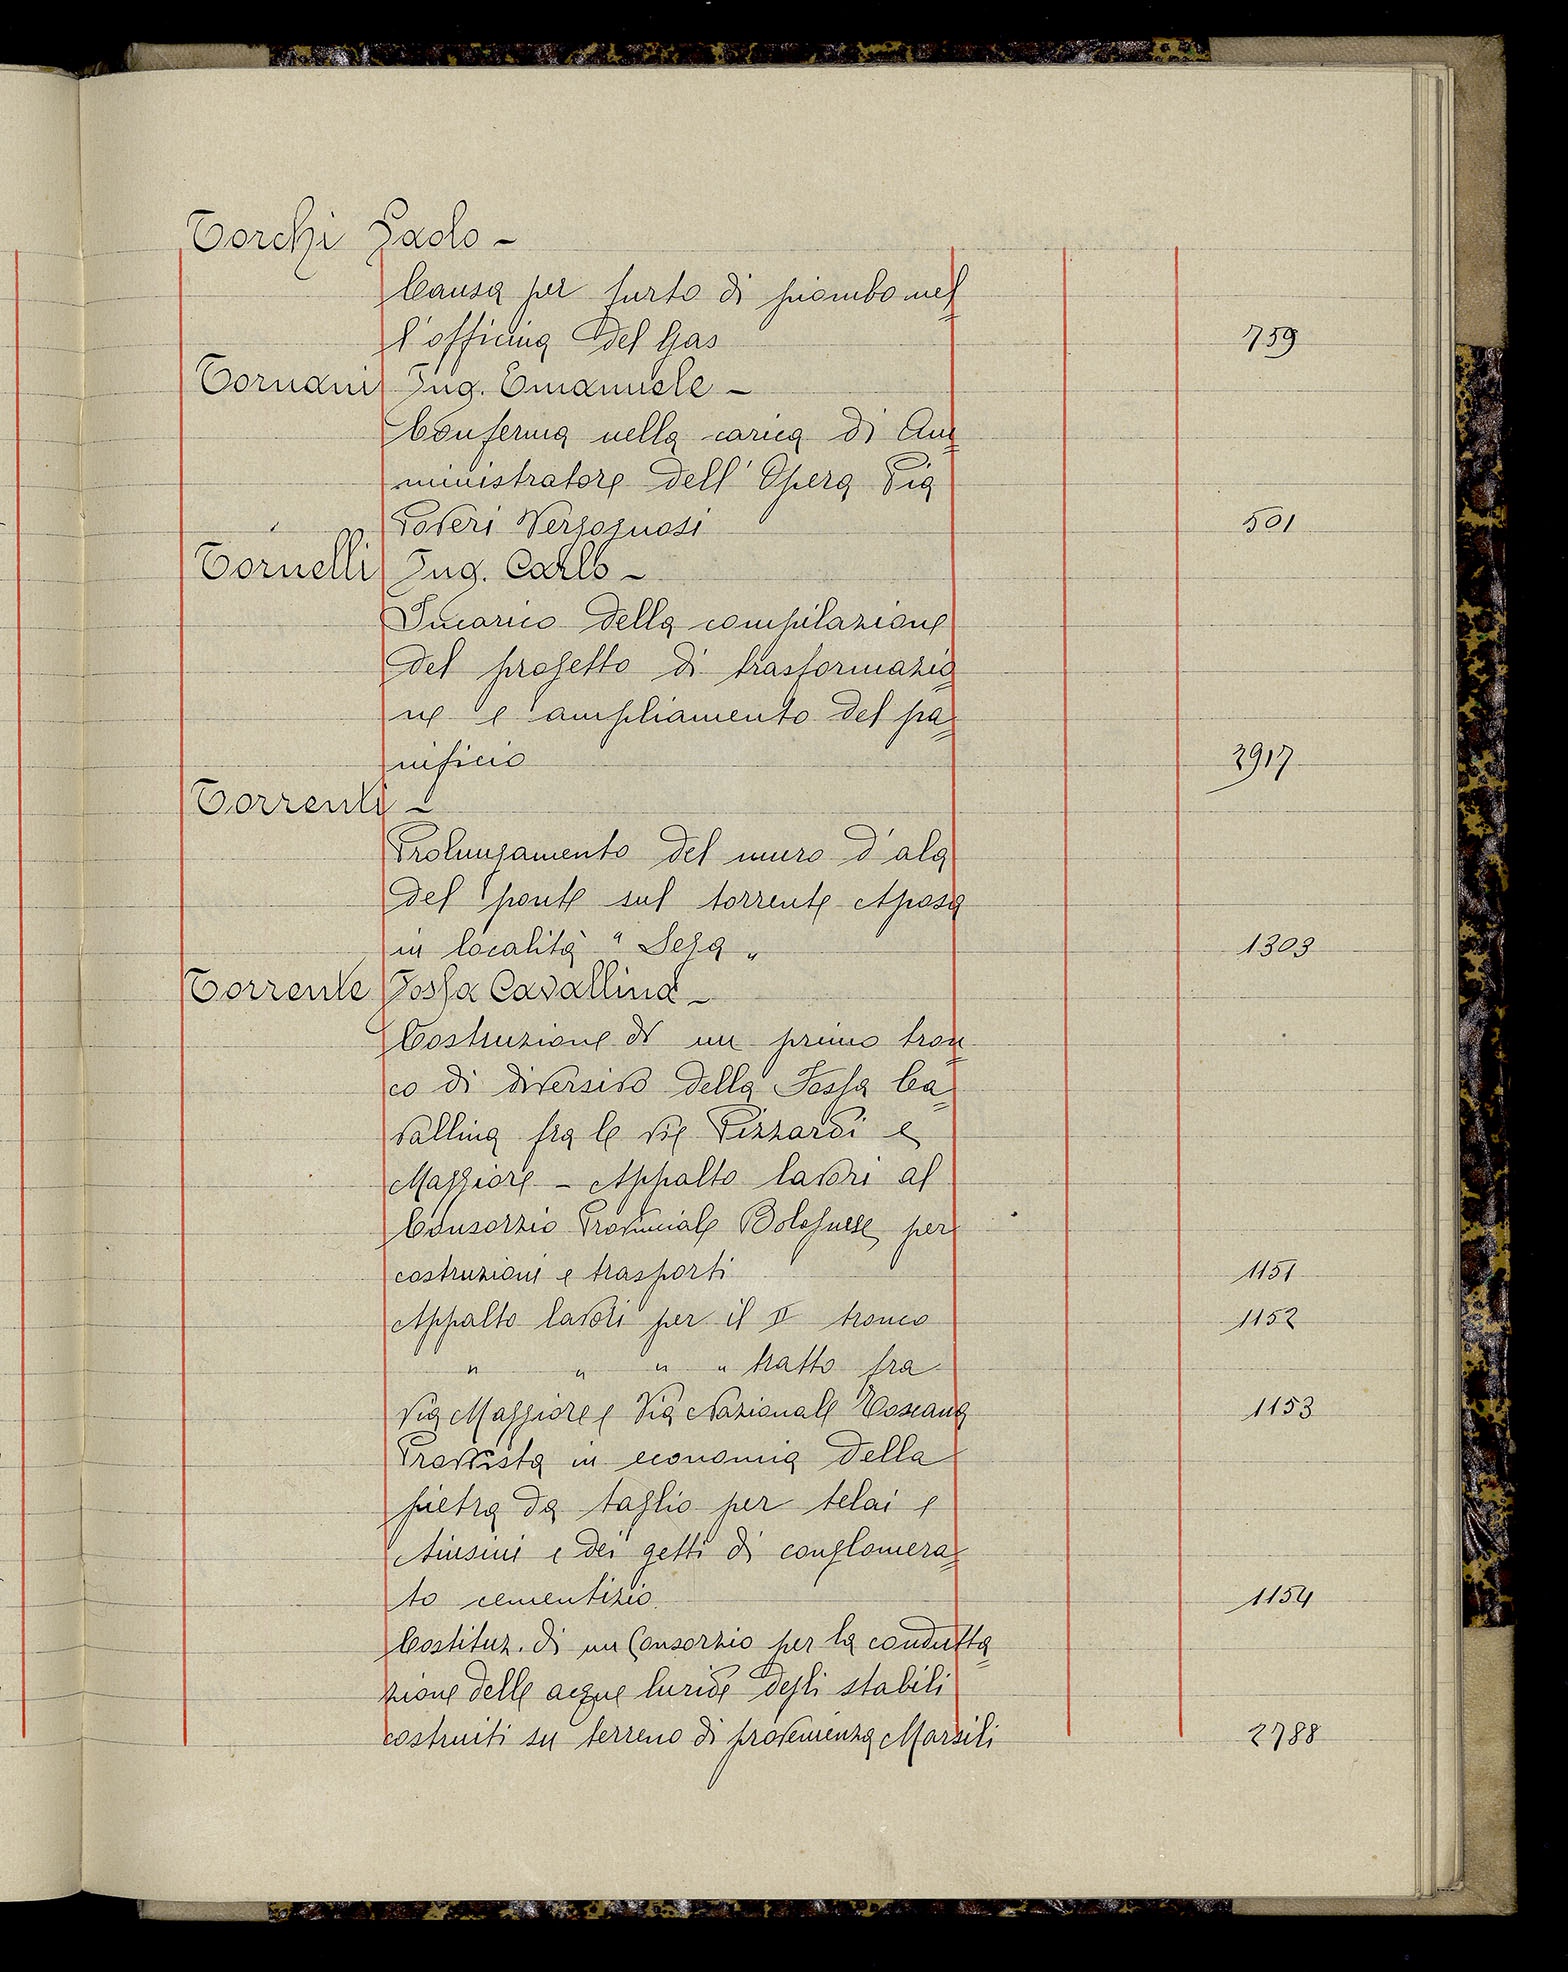 Torchi Paolo -
Causa per furto di piombo nel=
l'officina del Gas 759
Tornani Ing. Emanuele -
Conferma nella carica di Am=
ministratore dell'Opera Pia
Poveri Vergognosi 501
Tornelli Ing. Carlo -
Incarico della compilazione
del progetto di trasformazio=
ne e ampliamento del pa=
nificio 2917
Torrenti -
Prolungamento del muro d'ala
del ponte sul torrente Aposa
in località " Sega " 1303
Torrente Fossa Cavallina -
Costruzione di un primo tron=
co di diversivo della Fossa Ca=
vallina fra le vie Pizzardi e
Maggiore - Appalto lavori al
Consorzio Provinciale Bolognese per
costruzioni e trasporti 1151
Appalto lavori per il II tronco 1152
" " " " tratto fra
Via Maggiore e Via Nazionale Toscana 1153
Provvista in economia della
pietra da taglio per telai e
chiusini e dei getti di conglomera=
to cementizio. 1154
Costituz. di un Consorzio per la condutta=
zione delle acque luride degli stabili
costruiti su terreno di provenienza Marsili 2788